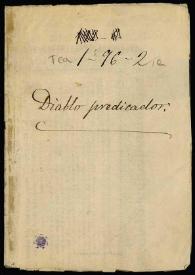 Tea 1-96-2a
Diablo predicador.